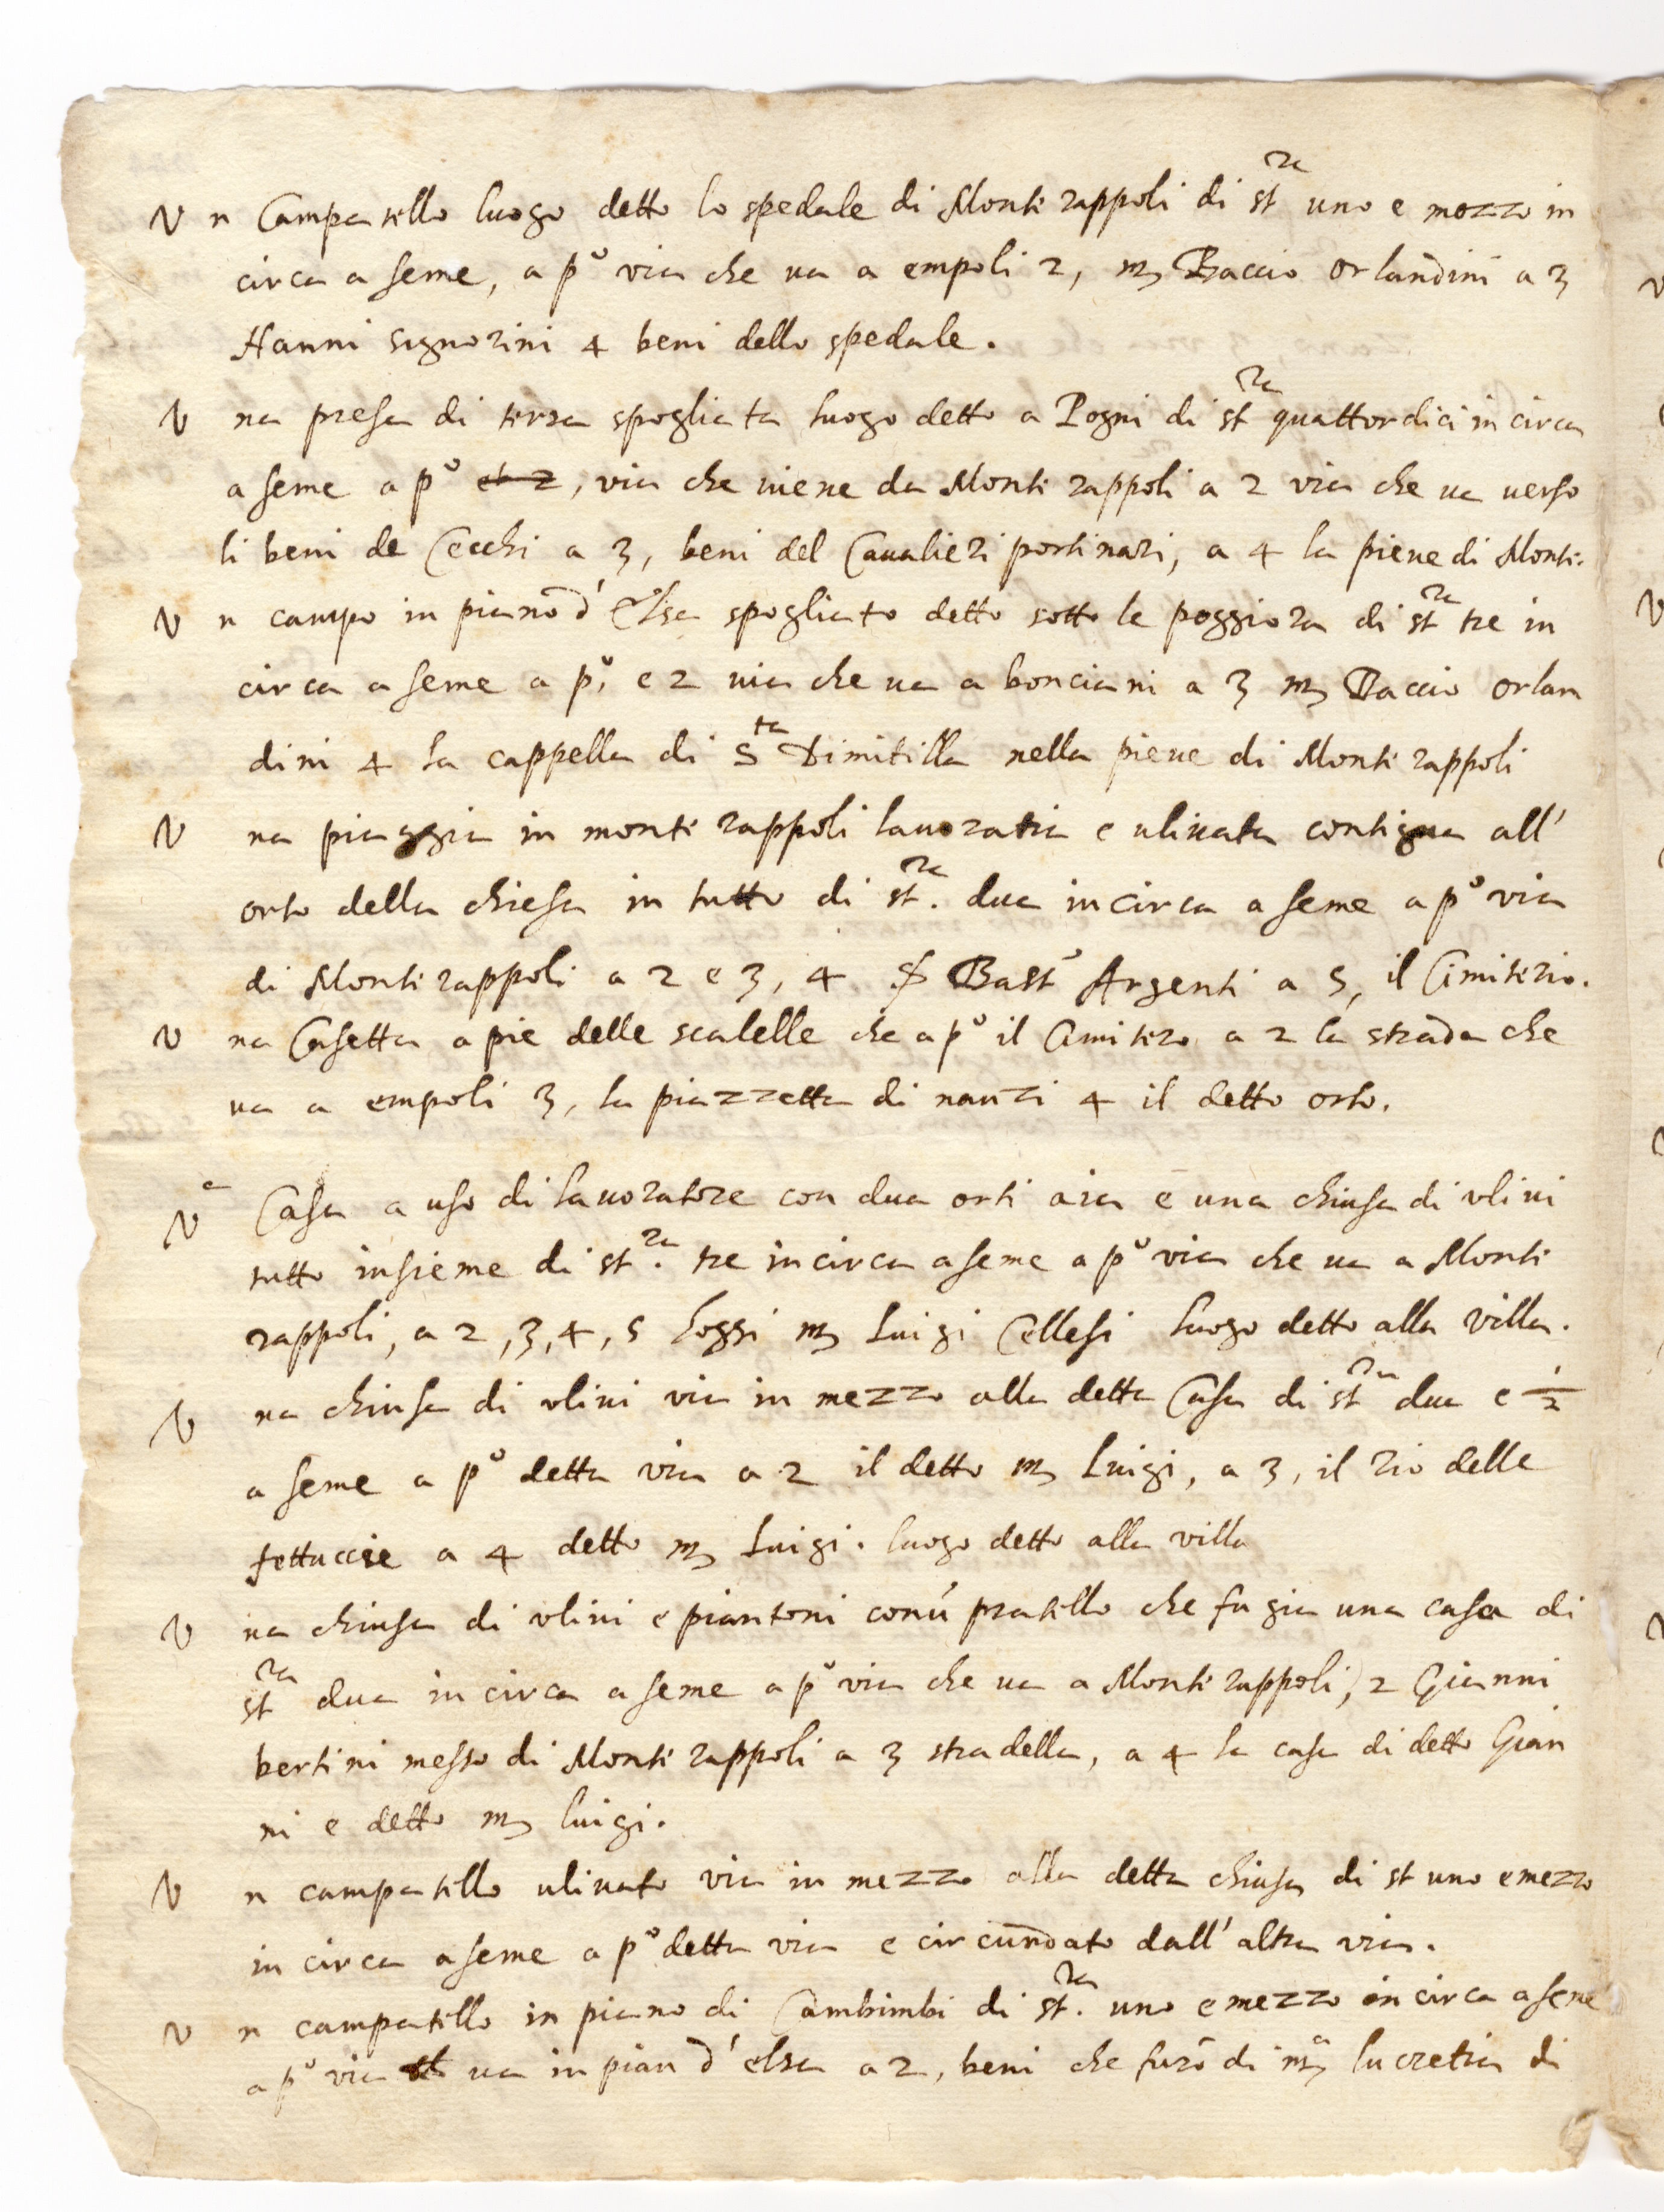 V n Campatello luogo detto lo spedale di Monte rappoli di st.ra uno e mezzo in
circa a seme, a p.o via che va a empoli 2, m Baccio orlandini a 3
Nanni signorini 4 beni dello spedale.
V na presa di terra spogliata luogo detto a Pogni di st.ra quattordici in circa
a seme a p.o et 2, via che viene da Monte rappoli a 2 via che va verso
li beni de Cecchi a 3, beni del Cavalieri portinari, a 4 la pieve di Monte.
V n campo in piano d' Elsa spogliato detto sotto le poggiora di st.ra tre in
circa a seme a p.o e 2 via che va a bonciani a 3 m Baccio orlan
dini 4 la cappella di S.ta Dimitilla nella pieve di Monte rappoli
V na piaggia in monte rappoli lavoratia e ulivata contigua all'
orto della chiesa in tutto di st.ra dua in circa a seme a p.o via
di Monte rappoli a 2 e 3, 4 Bast.o Argenti a 5, il Cimiterio.
V na Casetta a pie delle scalelle che a p.o il Cimitero a 2 la strada che
va a empoli 3, la piazzetta di nanzi 4 il detto orto.
V.a Casa a uso di lavoratore con dua orti aia e una chiusa di vlivi
tutto insieme di st.ra tre in circa a seme a p.o via che va a Monte
rappoli, a 2, 3, 4, 5 hoggi m Luigi Cellesi luogo detto alla villa.
V na chiusa di vlivi via in mezzo alla detta Casa di st.ra dua e 1/2
a seme a p.o detta via a 2 il detto m Luigi, a 3, il rio delle
fettuccie a 4 detto m Luigi. luogo detto alla villa
V na chiusa di vlivi e piantoni con ū pratello che fu gia una casa di
st.ra dua in circa a seme a p.o via che va a Monte rappoli, 2 Gianni
bertini messo di Monte rappoli a 3 stradella, a 4 la casa di detto Gian
ni e detto m luigi.
V n campatello ulivato via in mezzo alla detta chiusa di st uno e mezzo
in circa a seme a p.o detta via e circundato dall' altra via.
V n campatello in piano di Cambimbi di st.ra uno e mezzo in circa a seme
a p.o via ch va in pian d' elsa a 2, beni che furō di m.a lucretia di